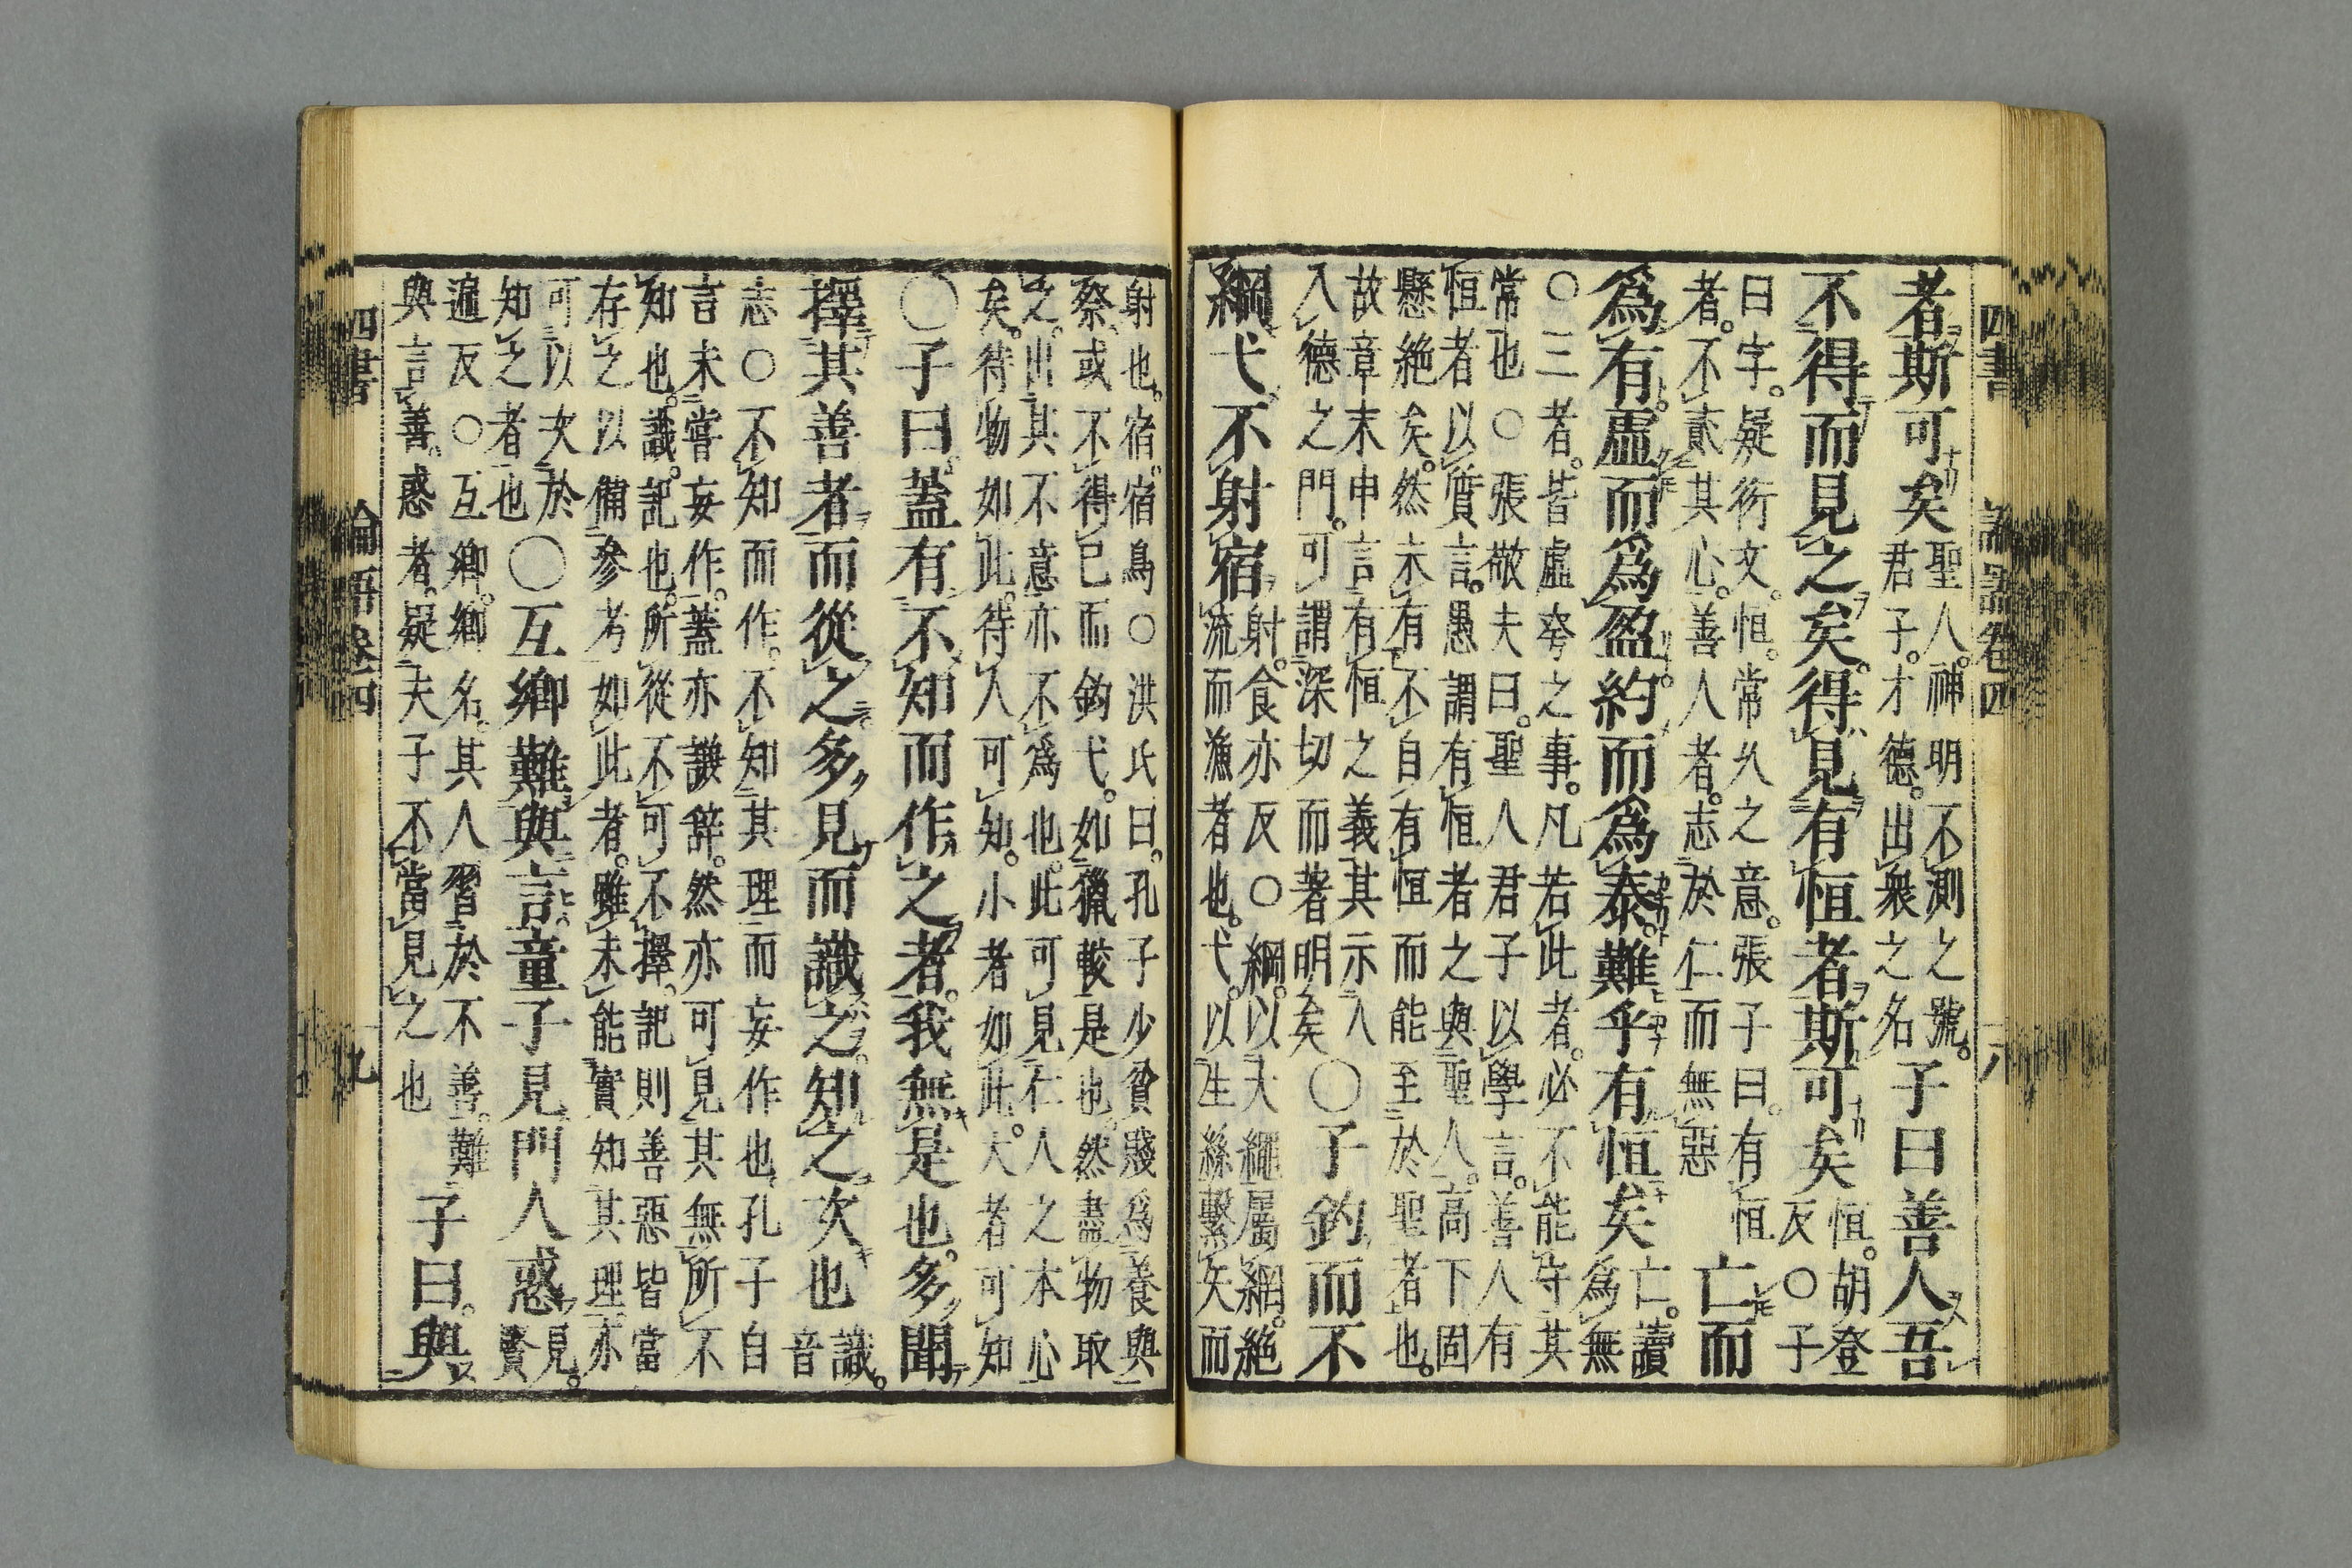 四書 論語卷四 八
者斯可矣聖人。神明不測之號。
君子。才德。出衆之名子曰善人吾
不得而見之矣。得見有恒者斯可矣恒。胡登
反○子
曰字。疑衍文。恒。常久之意。張子曰。有恒
者。不貳其心。善人者。志於仁而無惡亡而
爲有。虛而爲盈。約而爲泰。難乎有恒矣亡。讀
爲無
○三者。皆虛夸之事。凡若此者。必不能守其
常也○張敬夫曰。聖人君子以學言。善人有
恒者以質言。愚謂有恒者之與聖人。高下固
懸絶矣。然未有不自有恒而能至於聖者也。
故章末申言有恒之義其示人
入德之門。可謂深切而著明矣○子釣而不
綱弋。不射宿射。食亦反○綱。以大繩屬網。絶
流而漁者也。弋。以生絲繫矢而
射也。宿。宿鳥○洪氏曰。孔子少貧賤爲養與
祭。或不得已而釣弋。如獵較是也。然盡物取
之。出其不意亦不爲也。此可見仁人之本心
矣。待物如此。待人可知。小者如此。大者可知
○子曰。蓋有不知而作之者。我無是也。多聞
擇其善者而從之。多見而識之。知之次也識。
音
志○不知而作。不知其理而妄作也。孔子自
言未嘗妄作。蓋亦謙辭。然亦可見其無所不
知也。識。記也。所從不可不擇。記則善惡皆當
存之以備參考如此者。雖未能實知其理。亦
可以次於
知之者也○互鄕難與言。童子見門人惑見。
賢
遍反○互鄕。鄕名。其人習於不善。難
與言善。惑者。疑夫子不當見之也子曰。與
四書 論語卷四 九